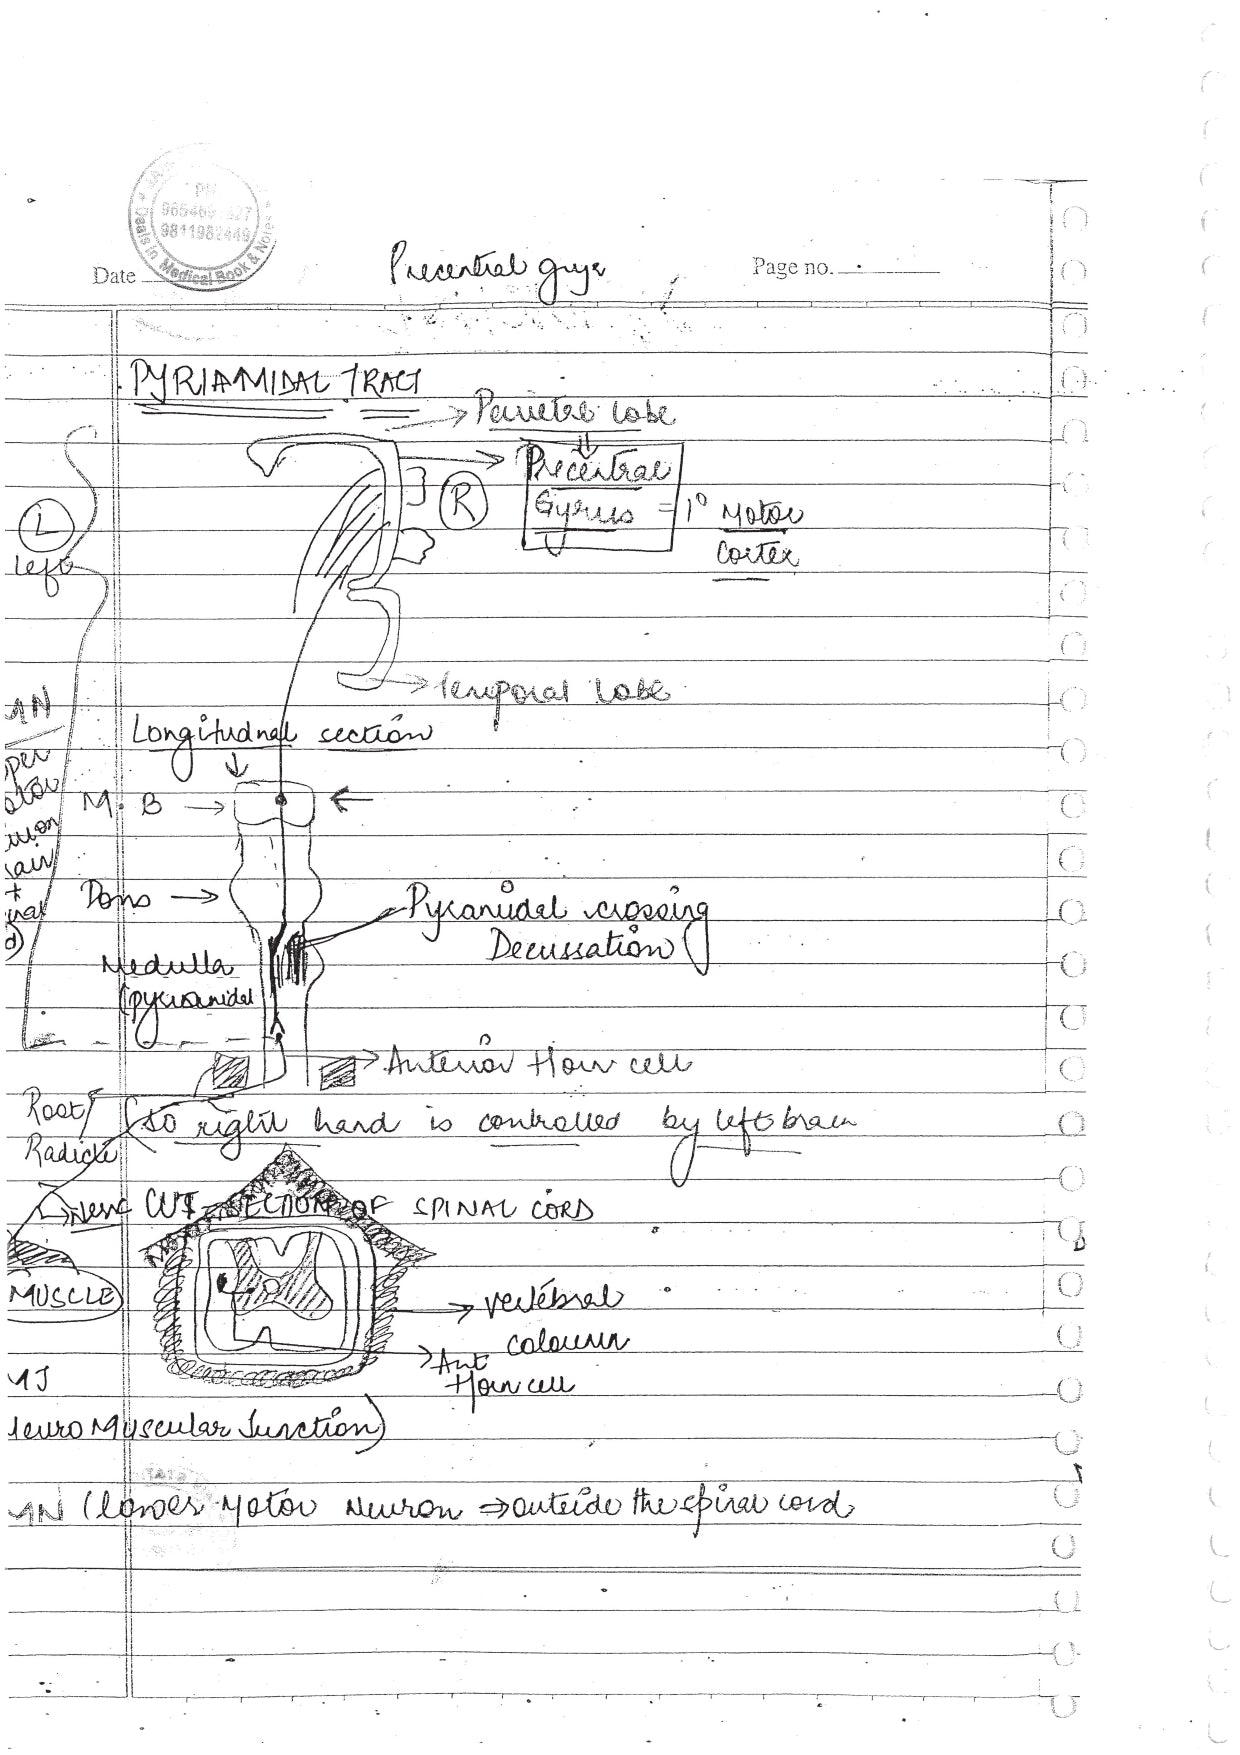 PH
9811982449
Deals in Medical Book & Notes
Date
Precentral gyre
Page no.
PYRIAMIDAL TRACT
Parietal lobe
Precentral
Gyrus = 1° Motor
Cortex
R
L
left
Temporal Lobe
Longitudnal section
M. B
Pons
Pyramidal crossing
Decussation
Medulla
(pyramidal
Anterior Horn cell
Root/
Radicle
(so right hand is controlled by left brain
Nerve
CUT SECTION OF SPINAL CORD
MUSCLE
vertebral
coloumn
Ant
Horn cell
euro Muscular Junction)
(lower Motor Neuron ⇒ outside the spinal cord